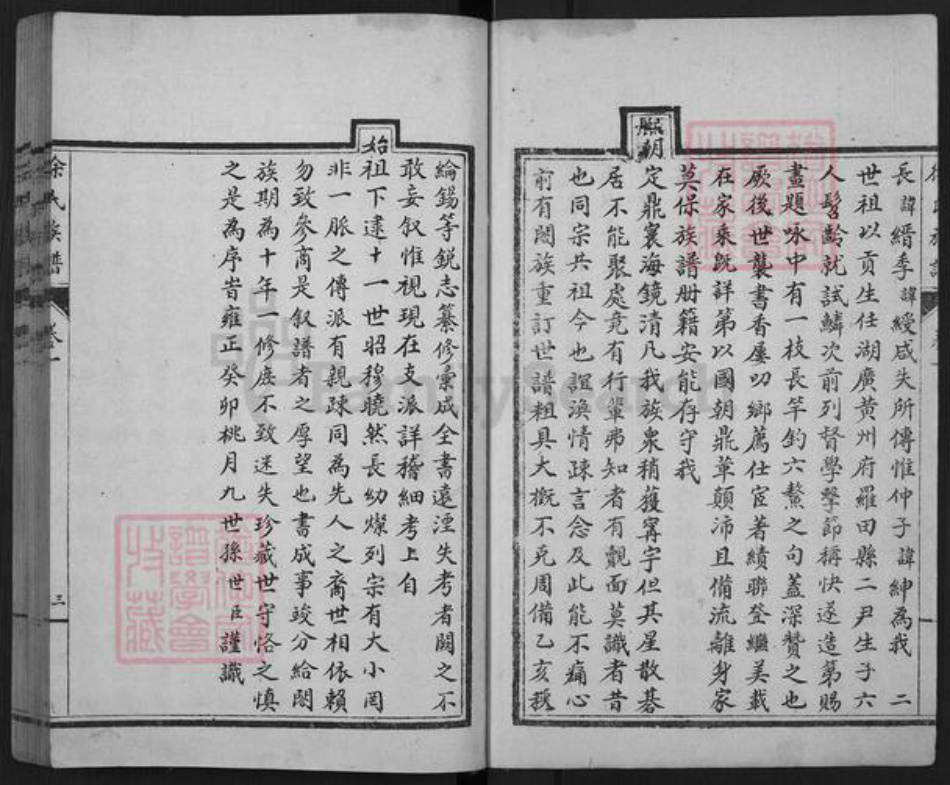 長諱縉季諱綬咸失所傳惟仲子諱紳為我二
世祖以貢生任湖廣黄州府羅田縣二尹生子六
人髫齡就試鱗次前列督學擊節稱快遂造第賜
畫題咏中有一枝長竿釣六鰲之句蓋深贊之也
厥後世襲書香屢叨鄉薦仕宦著績聯登繼美載
在家乘既詳第以國朝鼎革顛沛且備流離身家
莫保族譜册籍安能存守我
熙朝
定鼎寰海鏡清凡我族衆稍獲寗宇但其星散碁
居不能聚處竟有行輩弗知者有覿面莫識者昔
也同宗共祖今也誼渙情疎言念及此能不痛心
前有閤族重訂世譜粗具大概不克周備乙亥
綸錫等鋭志纂修彙成全書遠湮失考者闕之不
敢妄叙惟視現在支派詳稽細考上自
始
祖下逮十一世昭穆曉然長幼燦列宗有大小罔
非一脈之傳派有親疎同為先人之裔世相依賴
勿致參商是叙譜者之厚望也書成事竣分給閤
族期為十年一修庶不致迷失珍藏世守恪之慎
之是為序旹雍正癸卯桃月九世孫世臣謹識
余氏族譜
卷一
三
FamilySearch